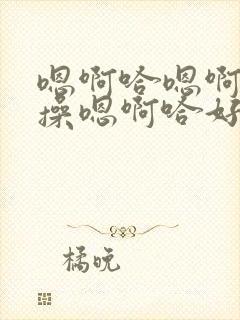 嗯啊哈嗯啊
操嗯啊哈好
橘晚